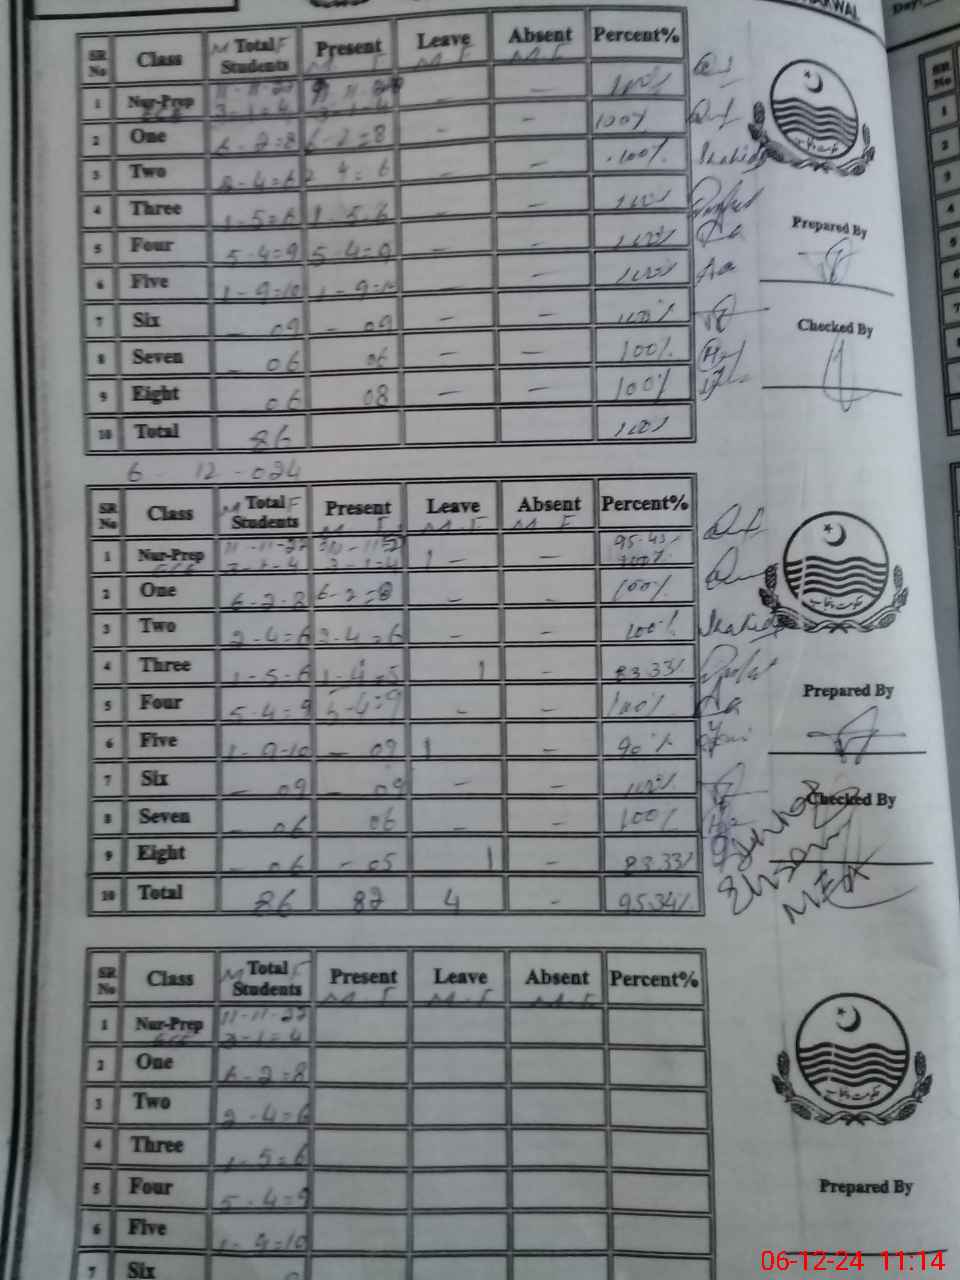 SR No Class M Total F Students Present M F Leave M F Absent M F Percent%
1 Nur-Prep 11-11-22 — — 100%
ECE 3-1=4 3-1=4
2 One 6-2=8 6-2=8 — — 100%
3 Two 2-4=6 2 4=6 — — 100%
4 Three 1-5=6 1-5.6 — — 100%
5 Four 5-4=9 5-4=9 — — 100%
6 Five 1-9=10 1-9=10 — — 100%
7 Six — 09 — 09 — — 100%
8 Seven — 06 06 — — 100%
9 Eight 06 08 — — 100%
10 Total 86 100%
Prepared By
Checked By
6 - 12 - 024
SR No Class M Total F Students Present M F Leave M F Absent M F Percent%
1 Nur-Prep 11-11-22 1 — — 95.45%
ECE 3-1-4 3-1=4 100%
2 One 6-2-8 6-2=8 — — 100%
3 Two 2-4=6 2-4=6 — — 100% Shahid
4 Three 1-5-6 1-4=5 1 — 83.33%
5 Four 5-4=9 5-4=9 — — 100%
6 Five 1-9-10 — 09 1 — 90%
7 Six — 09 — 09 — — 100%
8 Seven — 06 06 — — 100%
9 Eight — 06 — 05 1 — 83.33%
10 Total 86 82 4 — 95.34%
Prepared By
Checked By
SR No Class M Total F Students Present M F Leave M F Absent M F Percent%
1 Nur-Prep 11-11-22
ECE 3-1=4
2 One 6-2=8
3 Two 2-4=6
4 Three 1-5=6
5 Four 5-4=9
6 Five 1-9=10
7 Six
Prepared By
06-12-24 11:14